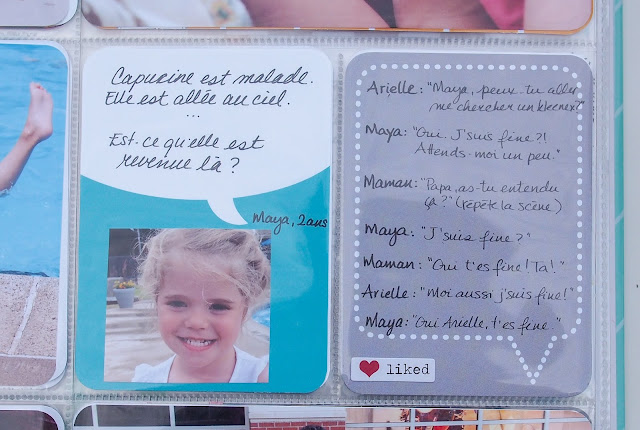 Capucine est malade.
Elle est allée au ciel.
...
Est-ce qu'elle est
revenue là ?
Maya, 2ans
Arielle: "Maya, peux-tu aller
me chercher un kleenex?"
Maya: "Oui. J'suis fine?!
Attends-moi un peu."
Maman: "Papa, as-tu entendu
ça?" (répète la scène)
Maya: "J'suis fine?"
Maman: "Oui t'es fine! Ta!"
Arielle: "Moi aussi j'suis fine!"
Maya: "Oui Arielle, t'es fine."
liked